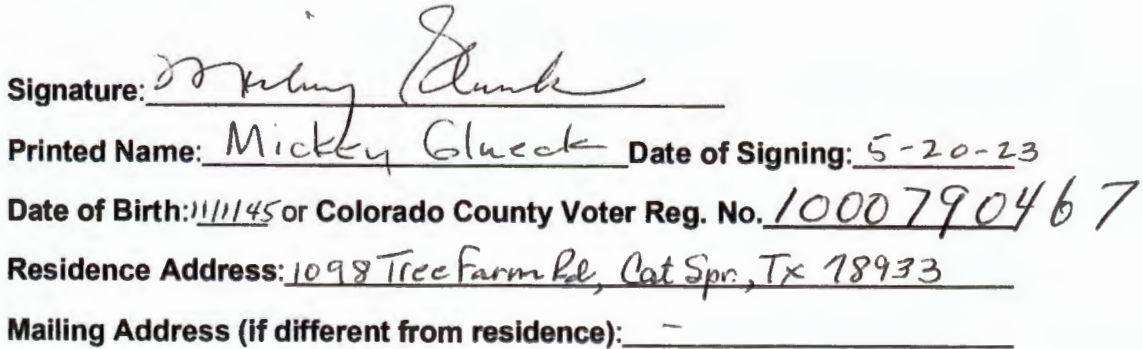 Signature: Mickey Glueck
Printed Name: Mickey Glueck Date of Signing: 5-20-23
Date of Birth: 11/1/45 or Colorado County Voter Reg. No. 1000790467
Residence Address: 1098 Tree Farm Rd, Cat Spr., Tx 78933
Mailing Address (if different from residence): -